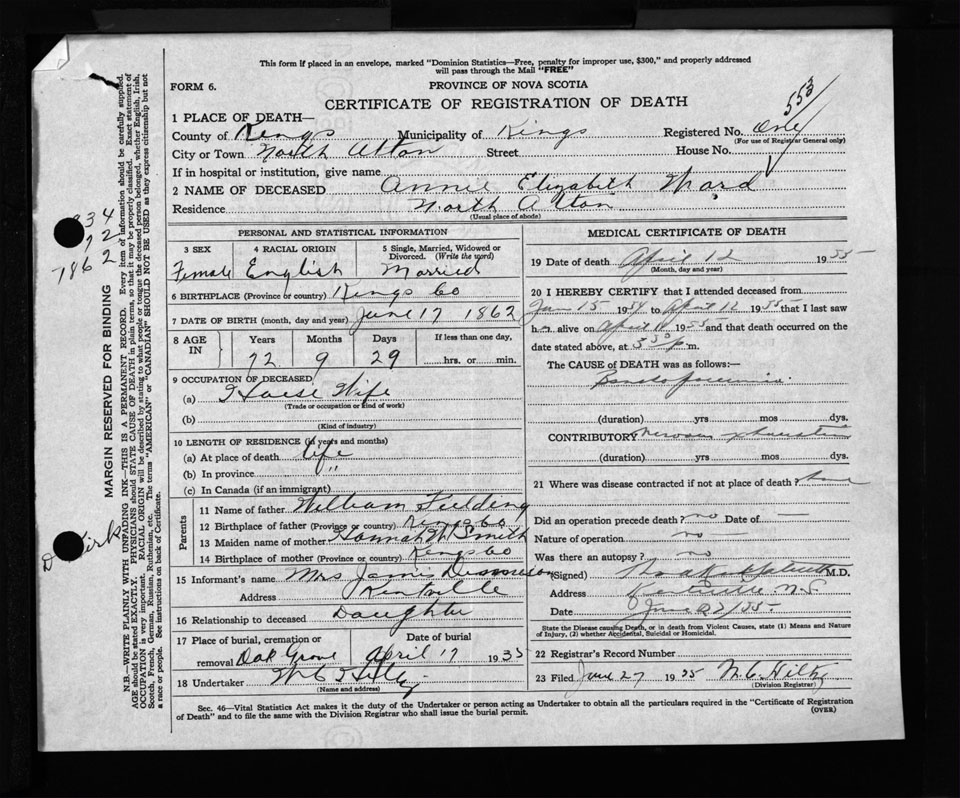 This form if placed in an envelope, marked "Dominion Statistics—Free, penalty for improper use, $300," and properly addressed
will pass through the Mail "FREE"
FORM 6.
PROVINCE OF NOVA SCOTIA
CERTIFICATE OF REGISTRATION OF DEATH
553
1 PLACE OF DEATH—
County of Kings Municipality of Kings Registered No. One
(For use of Registrar General only)
City or Town North Alton Street House No.
If in hospital or institution, give name
2 NAME OF DECEASED Annie Elizabeth Ward
Residence North Alton
(Usual place of abode)
PERSONAL AND STATISTICAL INFORMATION
3 SEX 4 RACIAL ORIGIN 5 Single, Married, Widowed or Divorced. (Write the word)
Female English Married
6 BIRTHPLACE (Province or country) Kings Co
7 DATE OF BIRTH (month, day and year) June 17 1862
8 AGE IN Years Months Days If less than one day,
72 9 29 hrs. or min.
9 OCCUPATION OF DECEASED
(a) House Wife
(Trade or occupation or kind of work)
(b)
(Kind of industry)
10 LENGTH OF RESIDENCE (in years and months)
(a) At place of death life
(b) In province "
(c) In Canada (if an immigrant)
Parents
11 Name of father William Fielding
12 Birthplace of father (Province or country) Kings Co
13 Maiden name of mother Hannah Smith
14 Birthplace of mother (Province or country) Kings Co
15 Informant's name Mrs
Address Kentville
16 Relationship to deceased Daughter
17 Place of burial, cremation or removal Date of burial
Oak Grove April 17 1935
18 Undertaker
(Name and address)
MEDICAL CERTIFICATE OF DEATH
19 Date of death April 12 1935
(Month, day and year)
20 I HEREBY CERTIFY that I attended deceased from
Jan 15 1934 to April 12 1935 that I last saw
h alive on April 1935 and that death occurred on the
date stated above, at p m.
The CAUSE of DEATH was as follows:—
Broncho pneumonia
(duration) yrs mos dys.
CONTRIBUTORY
(duration) yrs mos dys.
21 Where was disease contracted if not at place of death?
Did an operation precede death? no Date of —
Nature of operation no —
Was there an autopsy? no
(Signed) M.D.
Address
Date June 22/35
State the Disease causing Death, or in death from Violent Causes, state (1) Means and Nature
of Injury, (2) whether Accidental, Suicidal or Homicidal.
22 Registrar's Record Number
23 Filed June 27 1935
(Division Registrar)
Sec. 46—Vital Statistics Act makes it the duty of the Undertaker or person acting as Undertaker to obtain all the particulars required in the "Certificate of Registration
of Death" and to file the same with the Division Registrar who shall issue the burial permit.
(OVER)
MARGIN RESERVED FOR BINDING
N.B.—WRITE PLAINLY WITH UNFADING INK—THIS IS A PERMANENT RECORD. Every item of information should be carefully supplied.
AGE should be stated EXACTLY. PHYSICIANS should STATE CAUSE OF DEATH in plain terms, so that it may be properly classified. Exact statement of
OCCUPATION is very important. RACIAL ORIGIN will be described by stating to what people or tongue the deceased person belonged, whether English, Irish,
Scotch, French, German, Russian, Ruthenian, etc. The terms "AMERICAN" or "CANADIAN" SHOULD NOT BE USED as they express citizenship but not
a race or people. See instructions on back of Certificate.
7862